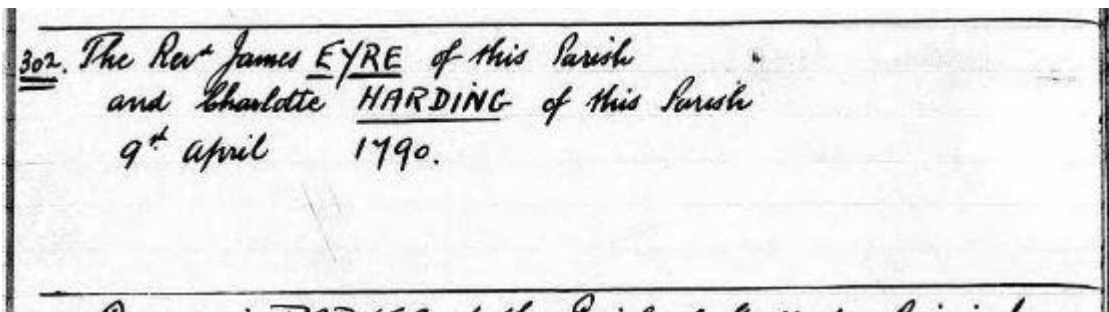 302. The Revd James EYRE of this Parish
and Charlotte HARDING of this Parish
9th April 1790.